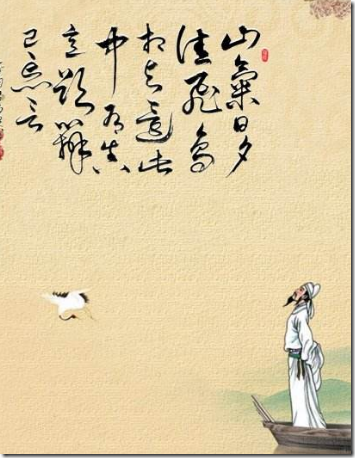 山氣日夕
佳飛鳥
相與還此
中有真
意欲辨
已忘言